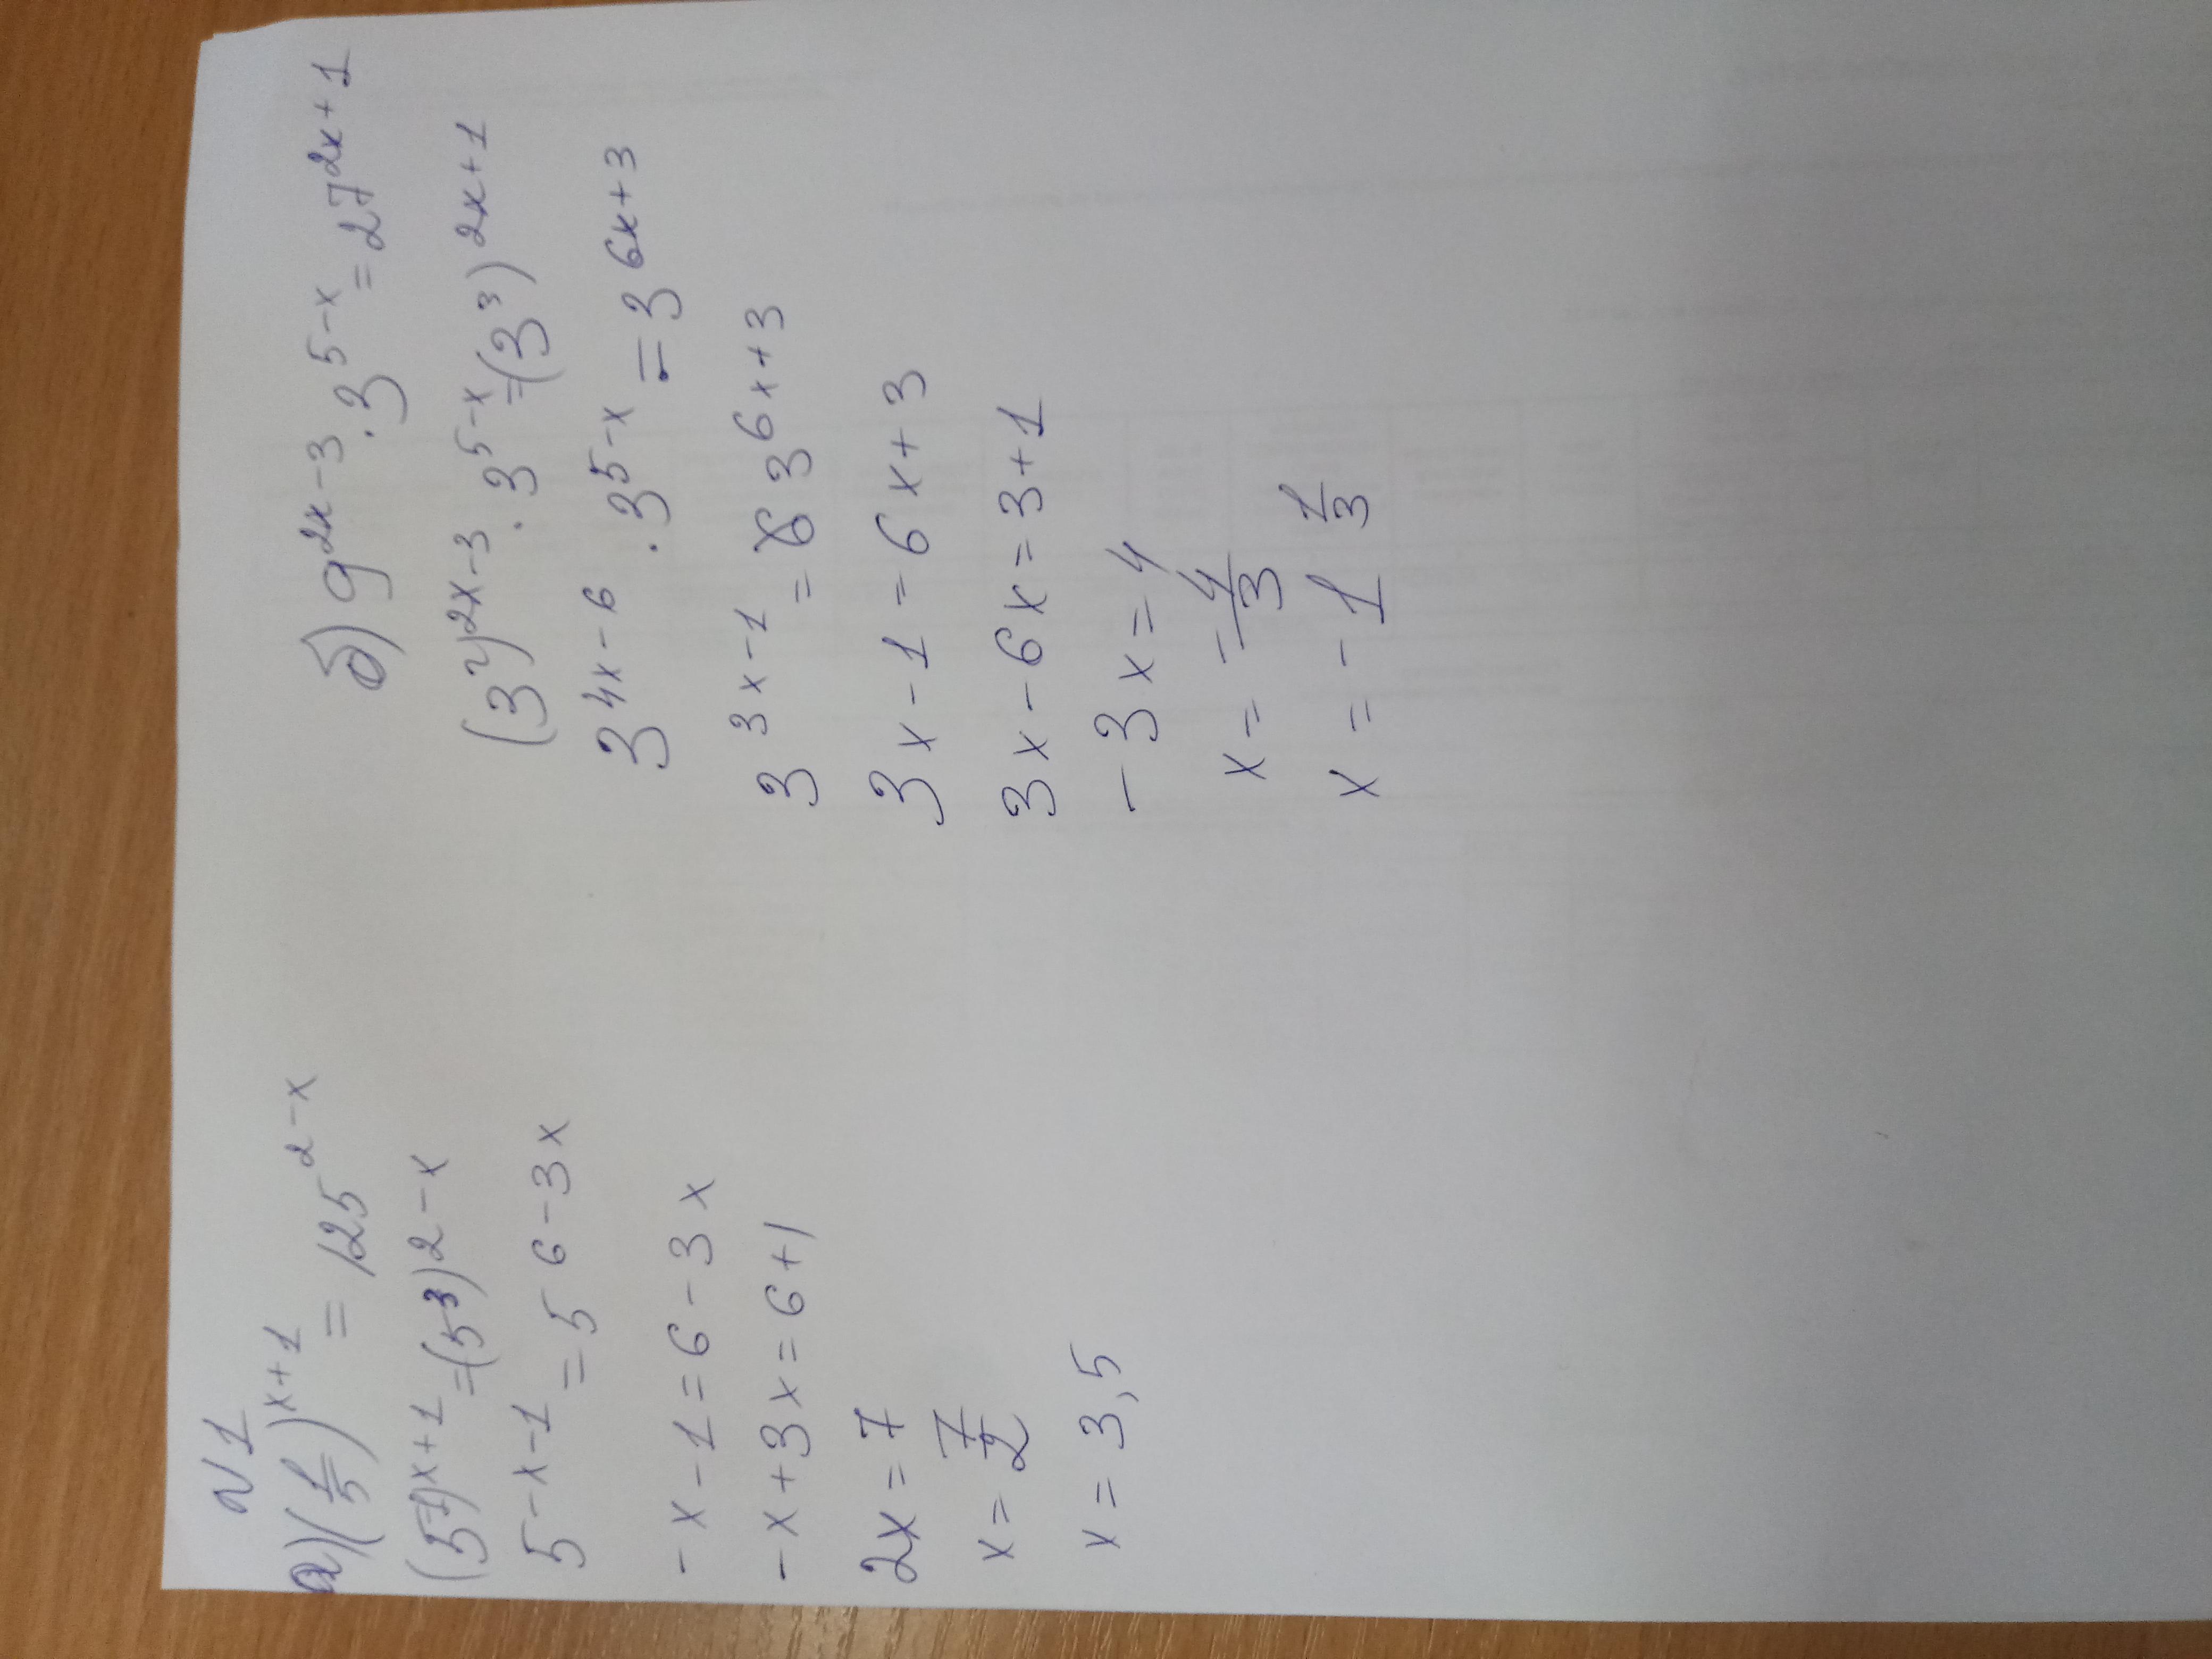 №1
а) (1/5)^(x+1) = 125^(2-x)
(5^(-1))^(x+1) = (5^3)^(2-x)
5^(-x-1) = 5^(6-3x)
-x-1=6-3x
-x+3x=6+1
2x=7
x=7/2
x=3,5
б) 9^(2x-3) · 3^(5-x) = 27^(2x+1)
(3^2)^(2x-3) · 3^(5-x) = (3^3)^(2x+1)
3^(4x-6) · 3^(5-x) = 3^(6x+3)
3^(3x-1) = 3^(6x+3)
3x-1=6x+3
3x-6x=3+1
-3x=4
x=-4/3
x=-1 1/3